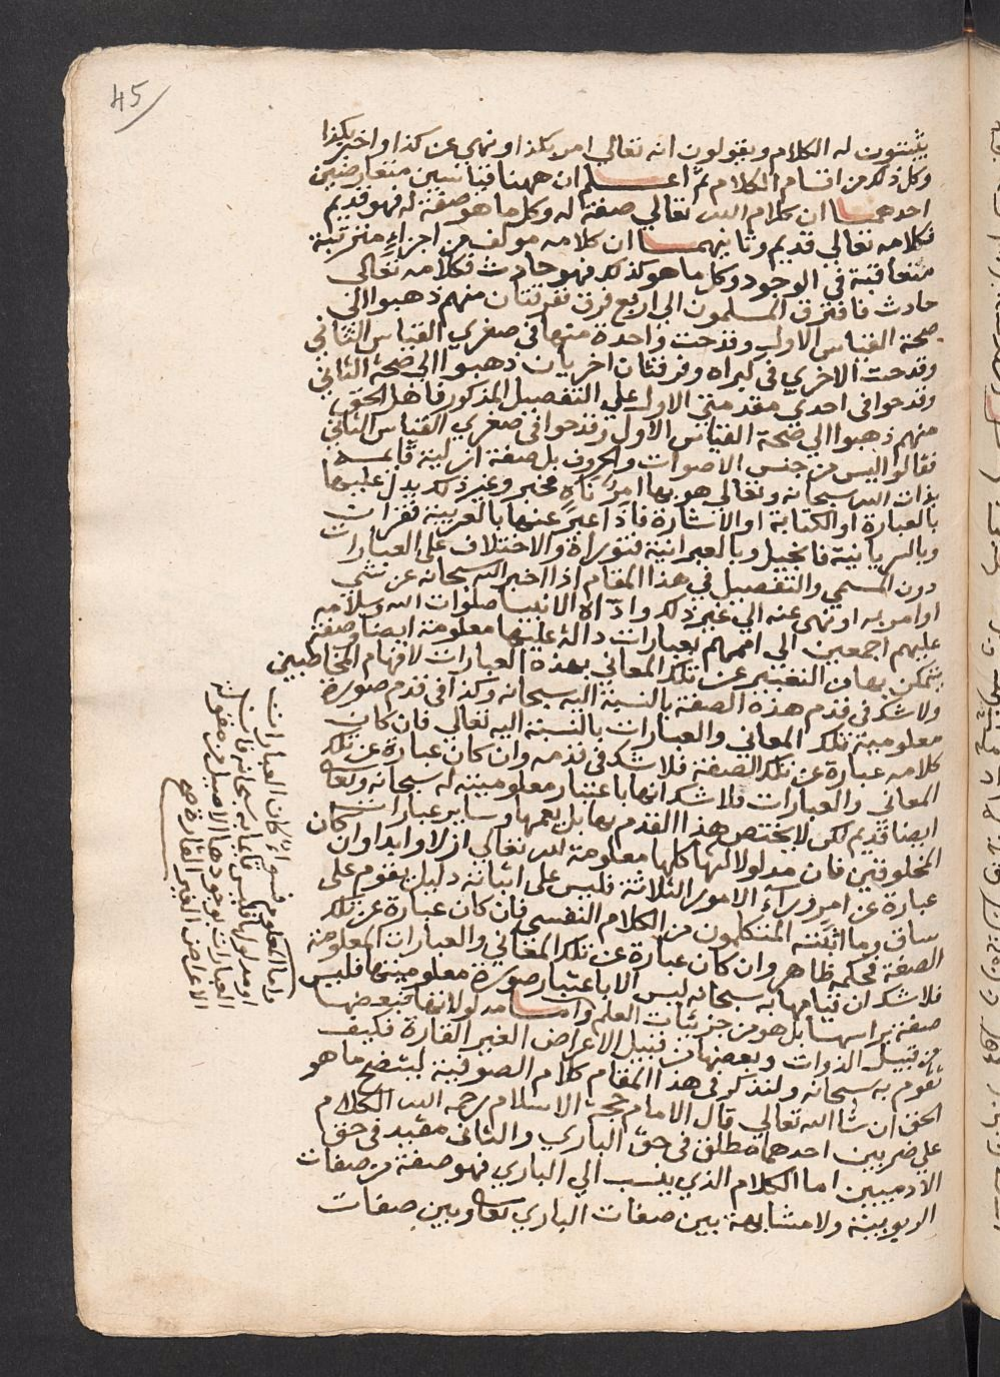 45
يثبتون له الكلام ويقولون انه تعالي امر بكذا ونهي عن كذا واخبر بكذا
وكل ذلك من اقسام الكلام ثم اعلم ان ههنا قياسين متعارضين
احدهما ان كلام الله تعالي صفة له وكل ما هو صفة له فهو قديم
فكلامه تعالي قديم وثانيهما ان كلامه مولف من اجزاء مترتبة
متعاقبة في الوجود وكل ما هو كذلك فهو حادث فكلامه تعالي
حادث فافترق المسلمون الي اربع فرق ففرقتان منهم ذهبوا الي
صحة القياس الاول وقدحت واحدة منها في صغري القياس الثاني
وقدحت الاخري في كبراه وفرقتان اخريان ذهبوا الي صحة الثاني
وقدحوا في احدي مقدمتي الاول علي التفصيل المذكور فاهل الحق
منهم ذهبوا الي صحة القياس الاول وقدحوا في صغري القياس الثاني
فقالوا ليس من جنس الاصوات والحروف بل صفة ازلية قايمة
بذات الله سبحانه وتعالي هو بها امر ناه مخبر وغير ذلك يدل عليها
بالعبارة او الكتابة او الاشارة فاذا عبر عنها بالعربية فقران
وبالسريانية فانجيل وبالعبرانية فتوراة والاختلاف علي العبارات
دون المسمي والتفصيل في هذا المقام اذا اخبر الله سبحانه عن شي
او امر به او نهي عنه الي غير ذلك واداه الانبيا صلوات الله وسلامه
عليهم اجمعين الي اممهم بعبارات دالة عليها معلومة ايضا وصفة
يتمكن بها من التعبير عن تلك المعاني بهذه العبارات لافهام المخاطبين
ولا شك في قدم هذه الصفة بالنسبة اليه سبحانه وكذا في قدم صورة
معلومية تلك المعاني والعبارات بالنسبة اليه تعالي فان كان
كلامه عبارة عن تلك الصفة فلا شك في قدمه وان كان عبارة عن تلك
المعاني والعبارات فلا شك انها باعتبار معلوميته له سبحانه وتعالي
ايضا قديم لكن لا يختص هذا القدم بها بل يعمها وساير عبارات
المخلوقين فان مدلولاتها كلها معلومة لله تعالي ازلا وابدا وان كان
عبارة عن امر وراء الامور الثلاثة فليس علي اثباته دليل يقوم علي
ساق وما اثبته المتكلمون من الكلام النفسي فان كان عبارة عن تلك
الصفة فحكمه ظاهر وان كان عبارة عن تلك المعاني والعبارات المعلومة
فلا شك ان قيامها به سبحانه ليس الا باعتبار صورة معلوميتها فليس
صفة براسها بل هو من جزئيات العلم واما مدلولاتها فبعضها
من قبيل الذوات وبعضها من قبيل الاعراض الغير القارة فكيف
تقوم به سبحانه ولنذكر في هذا المقام كلام الصوفية ليتضح ما هو
الحق ان شا الله تعالي قال الامام حجة الاسلام رحمه الله الكلام
علي ضربين احدهما مطلق في حق الباري والثاني مقيد في حق
الادميين اما الكلام الذي ينسب الي الباري فهو صفة من صفات
الربوبية ولا مشابهة بين صفات الباري تعالي وبين صفات
واما المعلوم فسواء كان العبارات
او مدلولها فليس قائما به سبحانه فان
العبارات بوجودها الاصيل من مقولة
الاعراض الغير القارة صح